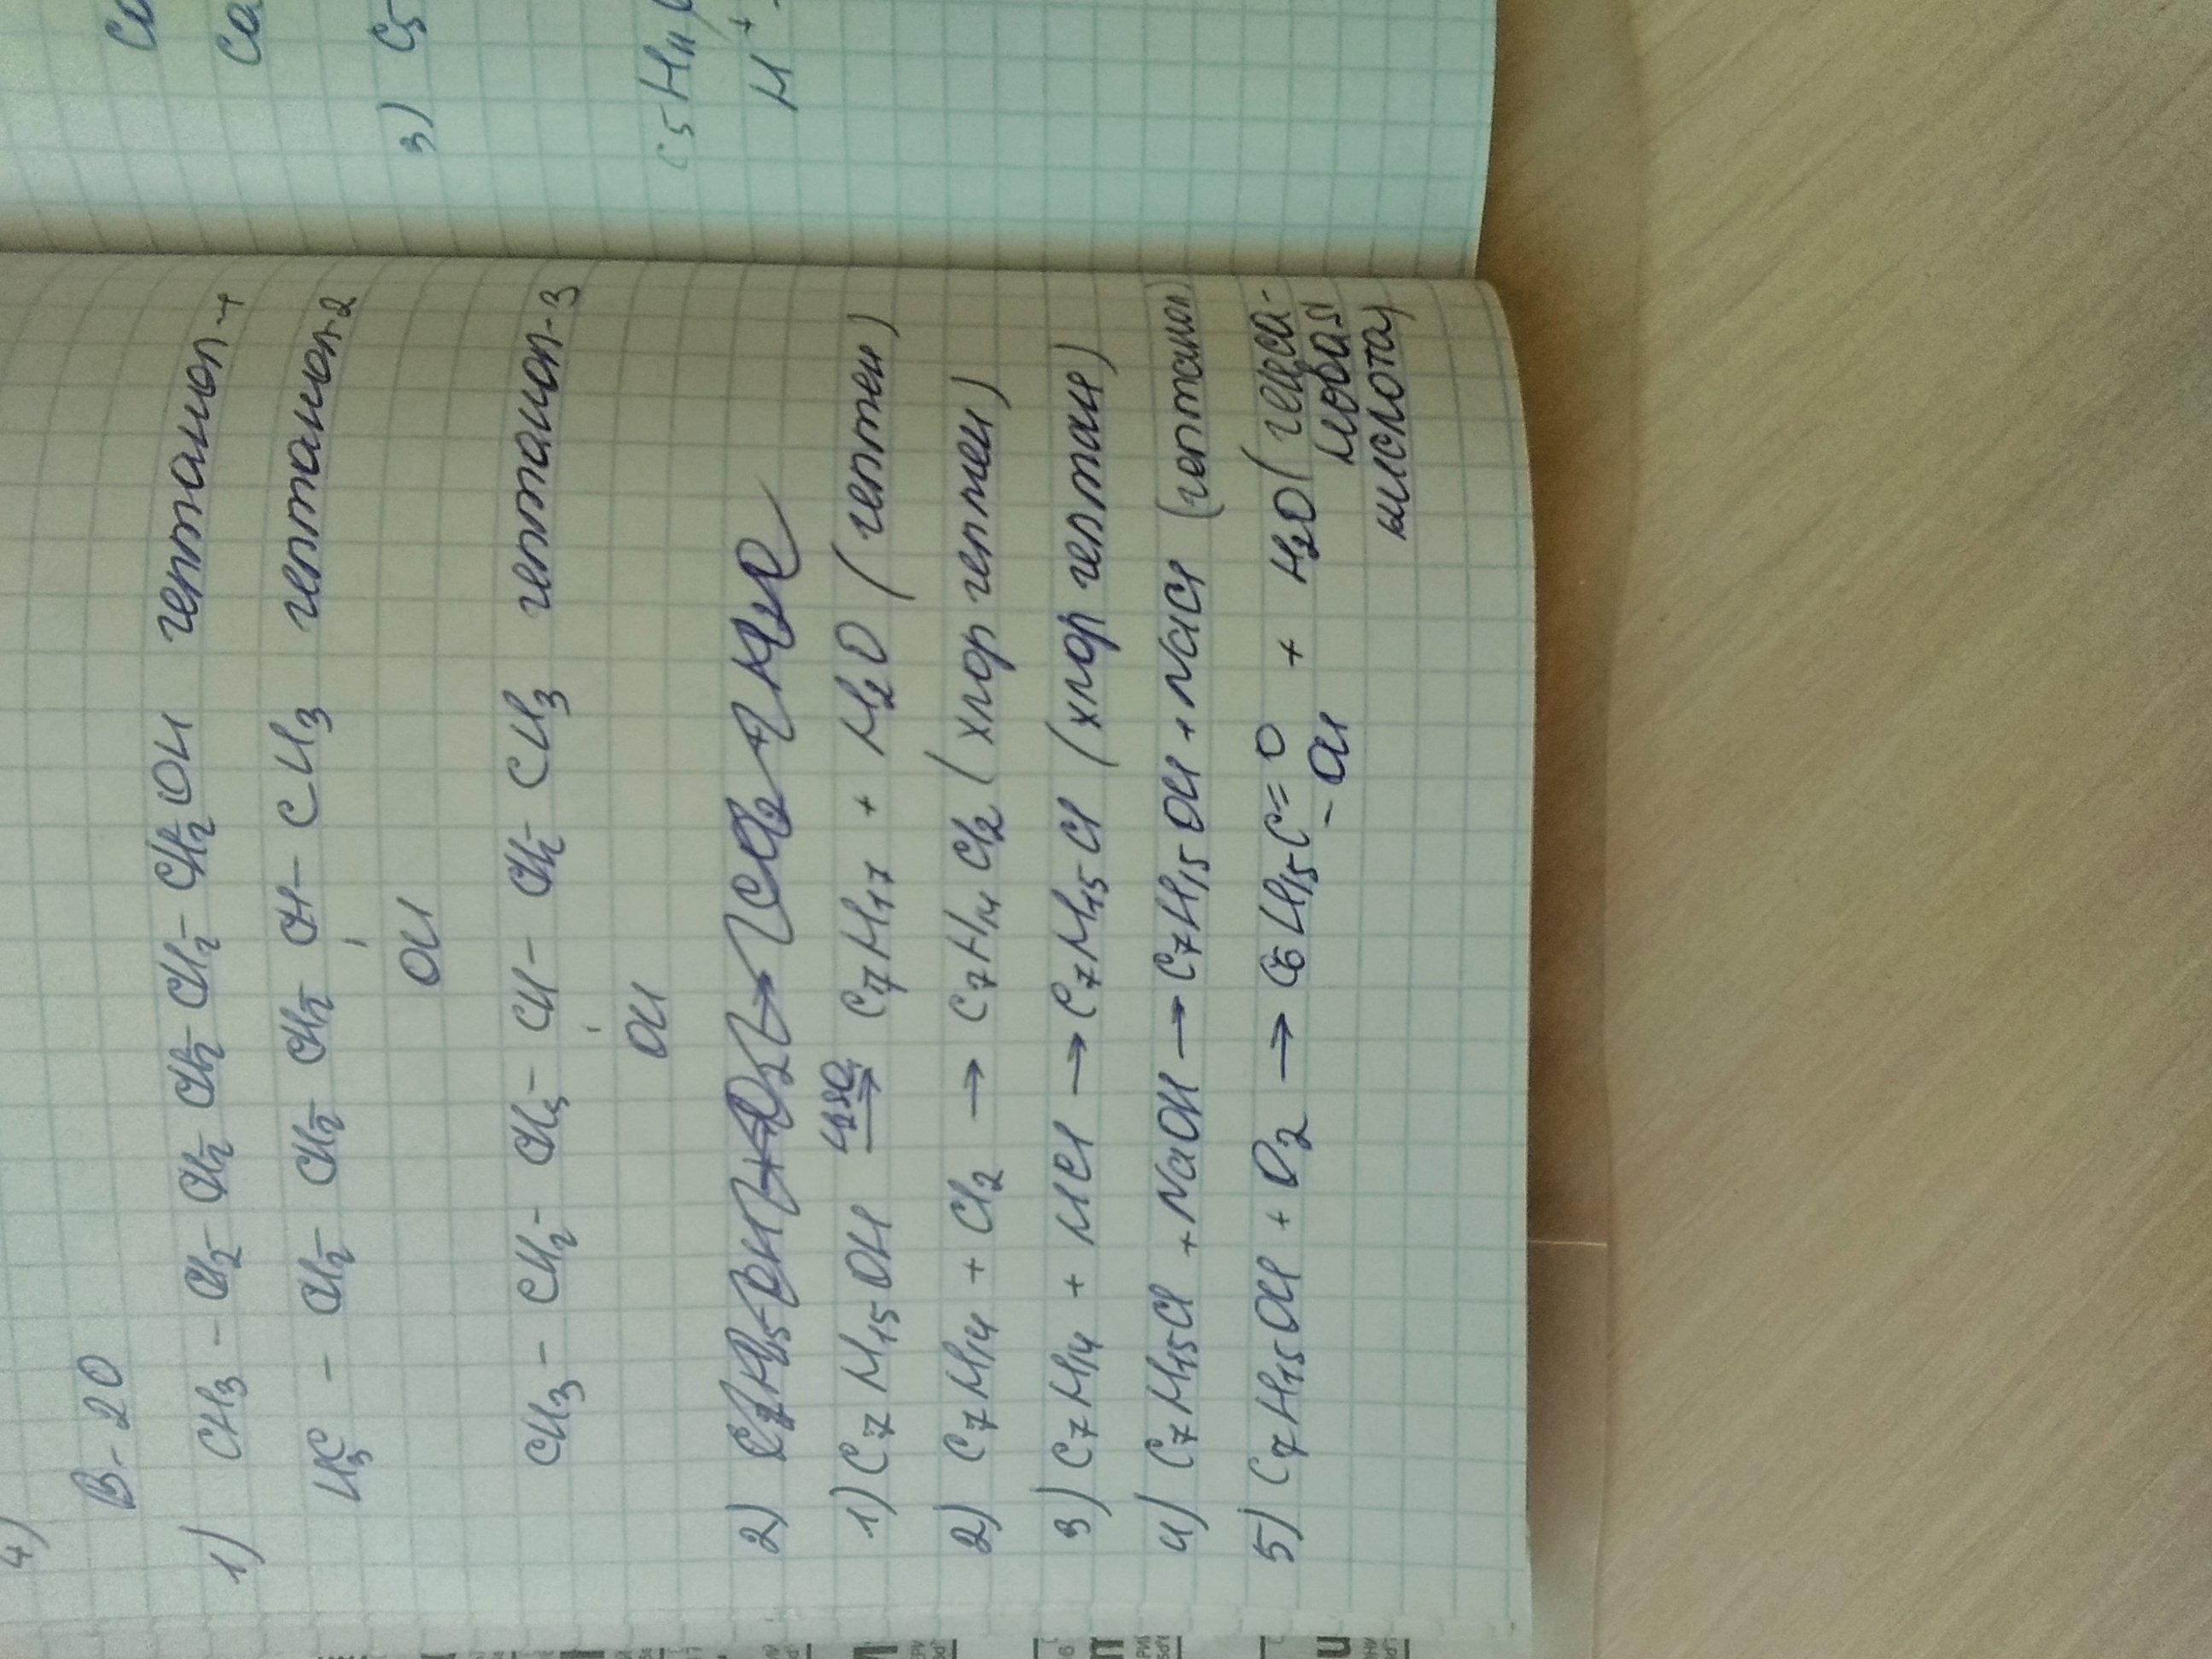 4)
В-20
1) CH3 - CH2 - CH2 - CH2 - CH2 - CH2 - CH2OH гептанол-1
H3C - CH2 - CH2 - CH2 - CH - CH3 гептанол-2
OH
CH3 - CH2 - CH2 - CH - CH2 - CH3 гептанол-3
OH
2)
1) C7H15OH H2SO4→ C7H17 + H2O (гептен)
2) C7H14 + Cl2 → C7H14Cl2 (хлор гептен)
3) C7H14 + HCl → C7H15Cl (хлор гептан)
4) C7H15Cl + NaOH → C7H15OH + NaCl (гептанол)
5) C7H15OH + O2 → C6H15C=O + H2O (гекса-
- OH новая
кислота)
3) C5
C5H11
H+